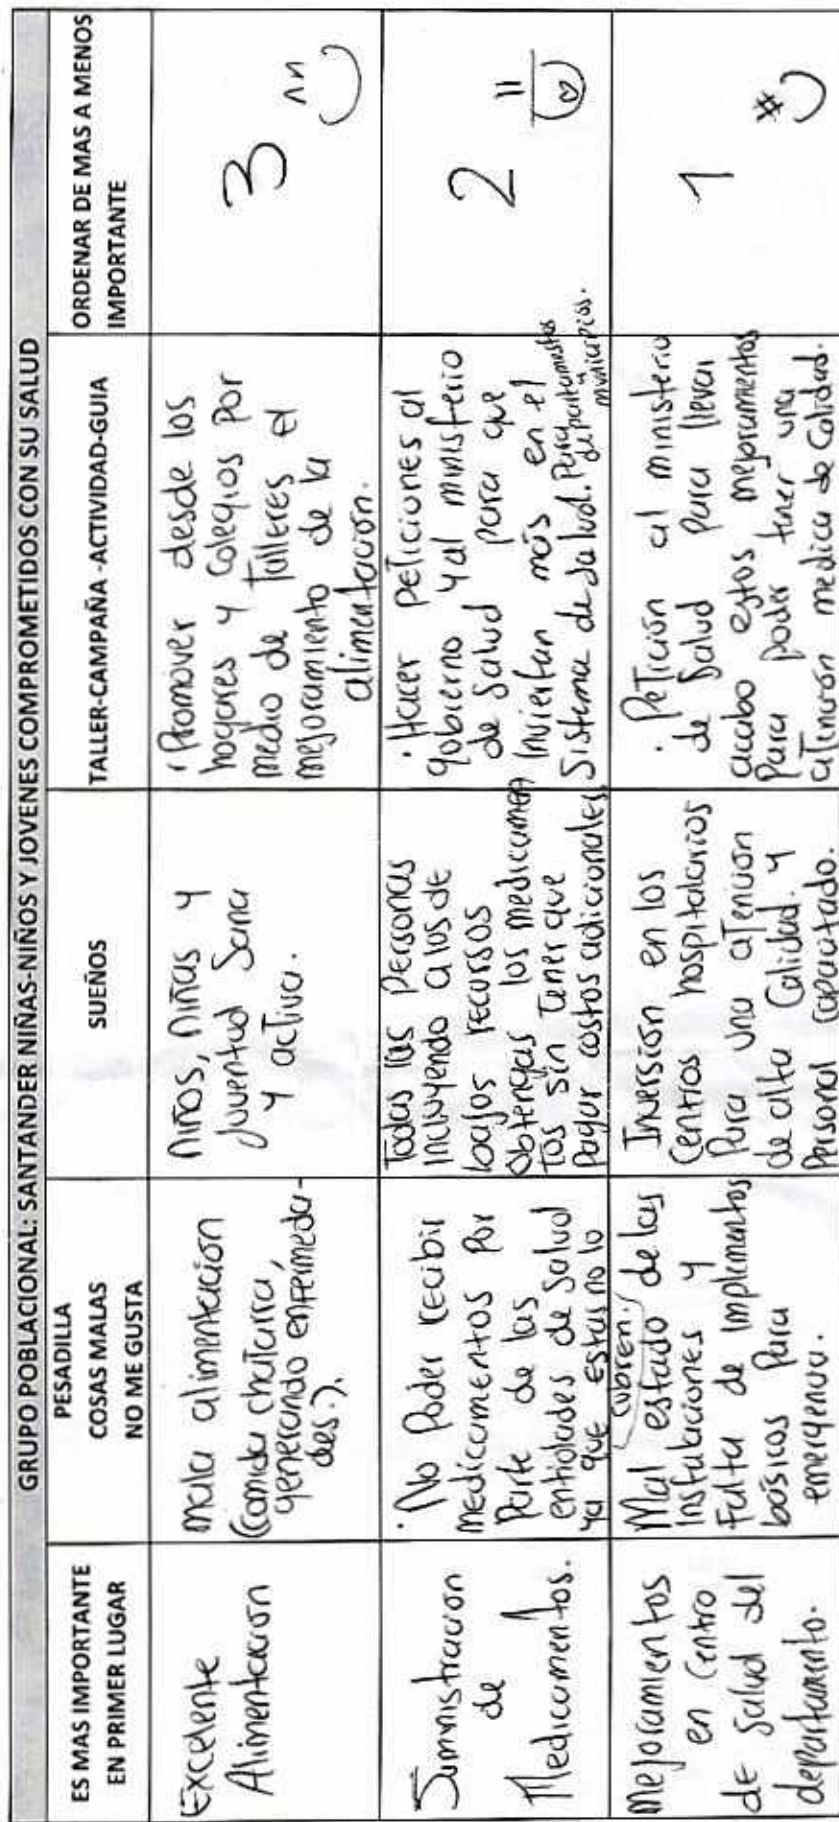 GRUPO POBLACIONAL: SANTANDER NIÑAS-NIÑOS Y JOVENES COMPROMETIDOS CON SU SALUD
ES MAS IMPORTANTE
EN PRIMER LUGAR
PESADILLA
COSAS MALAS
NO ME GUSTA
SUEÑOS
TALLER-CAMPAÑA -ACTIVIDAD-GUIA
ORDENAR DE MAS A MENOS
IMPORTANTE
Excelente
Alimentación
mala alimentación
(comida chatarra,
generando enfermeda-
des.).
niños, niñas y
juventud Sana
y activa.
· Promover desde los
hogares y Colegios por
medio de Talleres el
mejoramiento de la
alimentación.
3
Suministración
de
Medicamentos.
· No Poder recibir
medicamentos por
Parte de las
entidades de salud
ya que estas no lo
cubren.
Todas las personas
incluyendo a los de
bajos recursos
Obtengas los medicamen
tos sin tener que
pagar costos adicionales.
· Hacer peticiones al
gobierno y al ministerio
de salud para que
inviertan más en el
Sistema de salud. Para
departamentos
y
municipios.
2
Mejoramientos
en Centro
de salud del
departamento.
Mal estado de las
instalaciones y
Falta de implementos
básicos para
emergencia.
Inversión en los
Centros hospitalarios
Para una atención
de alta Calidad. y
Personal capacitado.
· Petición al ministerio
de salud para llevar
acabo estos mejoramentos
Para poder tener una
atención medica de Calidad.
1